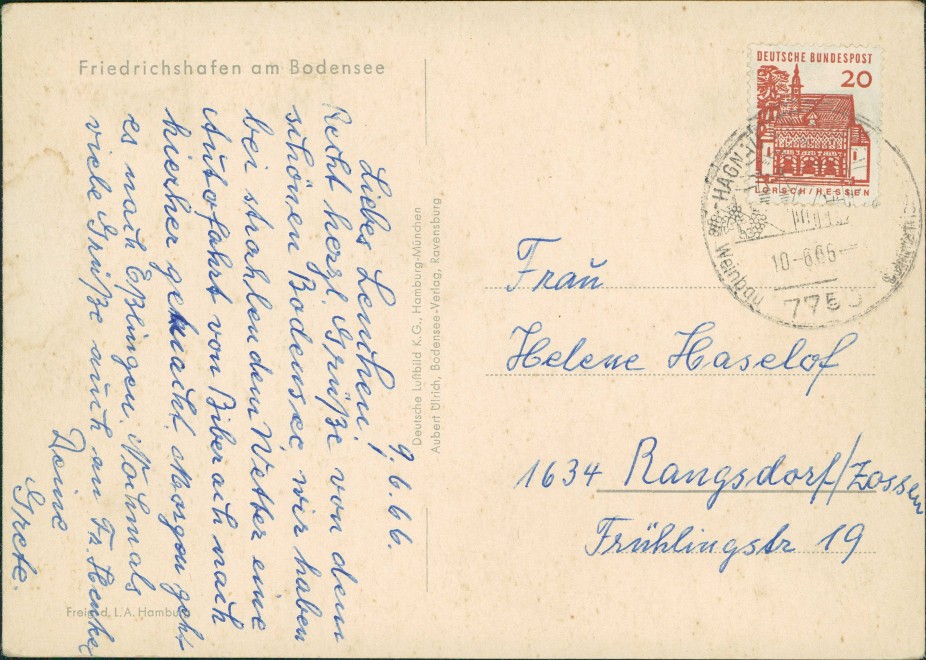 Friedrichshafen am Bodensee
9.6.66.
Liebes Lenchen!
Recht herzl. Grüße von dem
schönen Bodensee, wir haben
bei strahlendem Wetter eine
Autofahrt von Biberach nach
hierher gemacht. Morgen geht
es nach Eßlingen. Nochmals
viele Grüße auch an Fr. Henke
Deine
Grete.
Freigd. L.A. Hamburg
Deutsche Luftbild K.G., Hamburg-München
Aubert Ullrich, Bodensee-Verlag, Ravensburg
DEUTSCHE BUNDESPOST
20
LORSCH/HESSEN
HAGN
Weinbau
10-6.66-
775
Frau
Helene Haselof
1634 Rangsdorf/Zossen
Frühlingstr 19